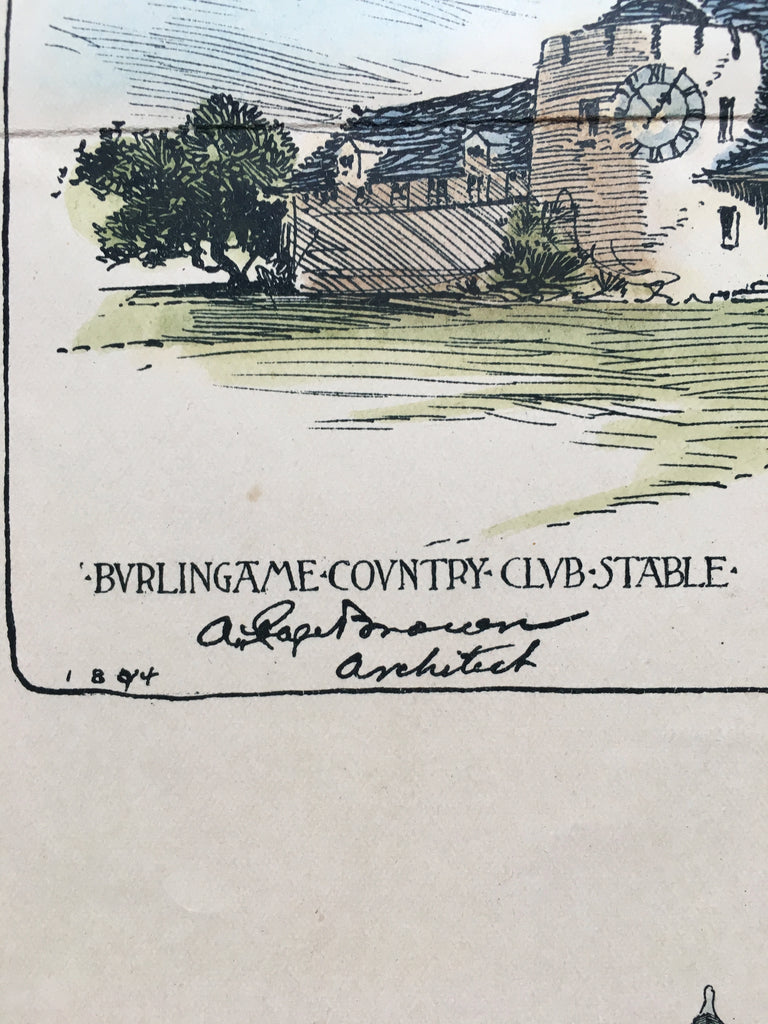 XII
·BVRLINGAME·COVNTRY·CLVB·STABLE·
A. Page Brown
Architect
1894